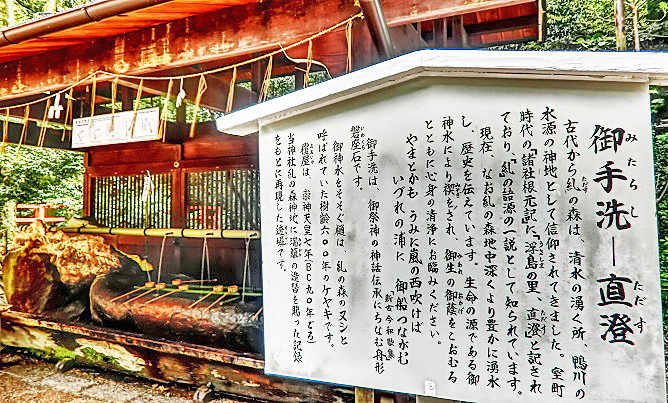 御手洗―直澄
みたらし
ただす
古代から糺の森は、清水の湧く所、鴨川の
水源の神地として信仰されてきました。室町
時代の『諸社根元記』に、「浮島の里、直澄」と記され
ており、「糺」の語源の一説として知られています。
現在、なお糺の森地中深くより豊かに湧水
し、歴史を伝えています。生命の源である御
神水により禊をされ、御生の御蔭をこおむる
とともに心身の清浄にお臨みください。
やまとかも うみに嵐の西吹けば
いづれの浦に 御船つながむ
新古今和歌集
御手洗は、御祭神の神話伝承にちなむ舟形
磐座石です。
御神水をそそぐ樋は、糺の森の主と
呼ばれていた樹齢六〇〇年のケヤキです。
檀屋は、崇神天皇七年(BC九〇年ごろ)
当神社糺の森神地に瑞籬の造替を賜った記録
をもとに再現した遺構です。